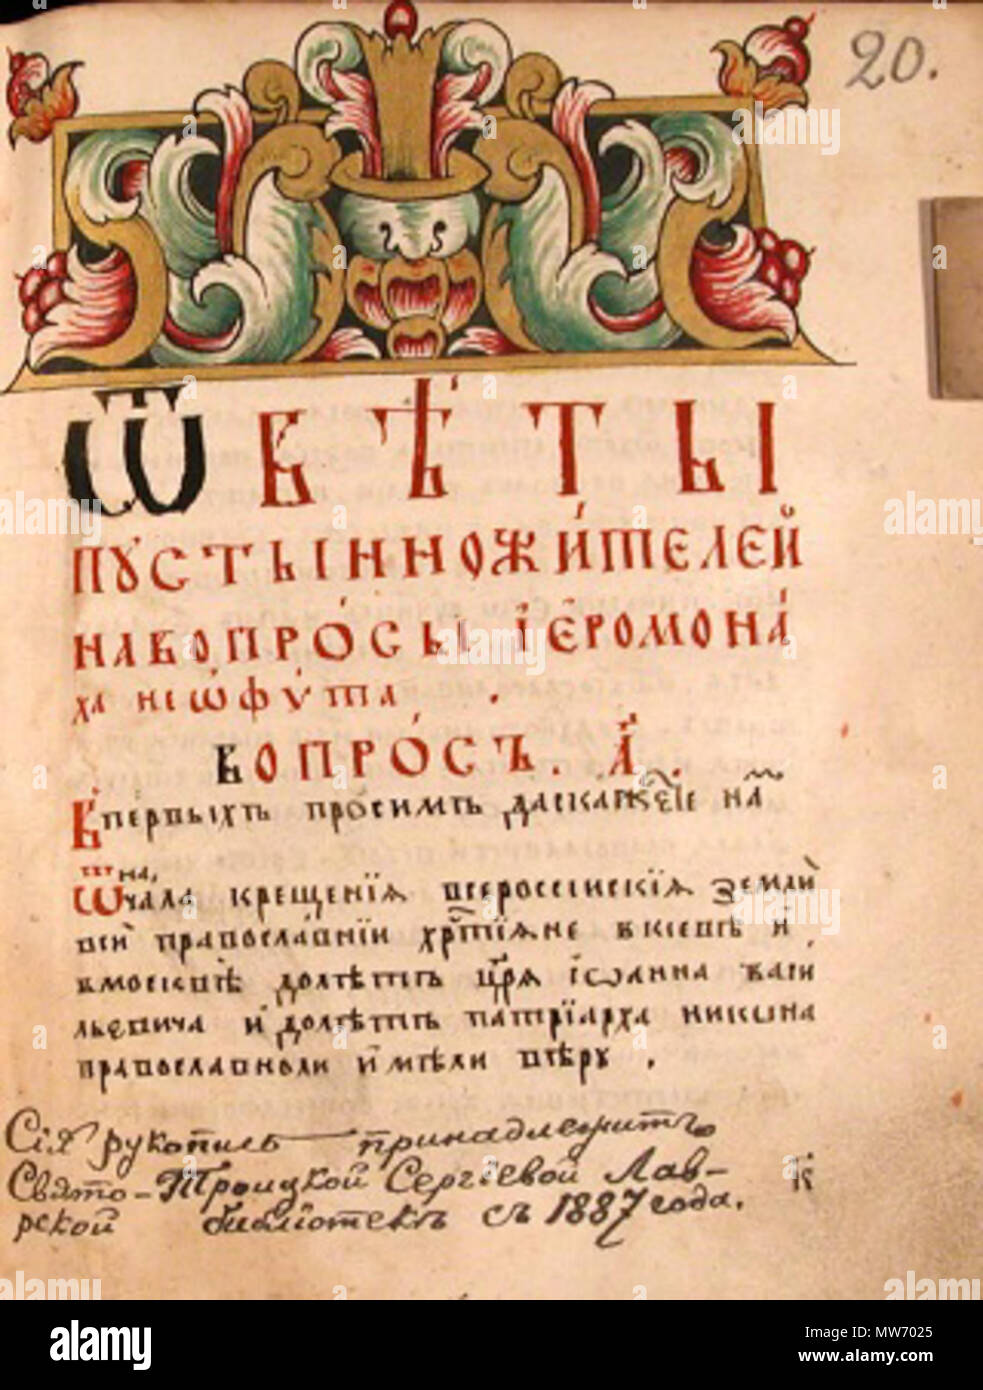 20.
Ѿвѣ́ты
пꙋсты́нножи́телей
на вопро́сы і҆еромона́
ха неѡфѵ́та .
Вопро́съ . а҃ .
Впервыхъ про́симъ, да скажетсѧ на́мъ
ѿ на,
чала креще́нїѧ всеросси́искїѧ земли́
вси́ правосла́внїи хрⷭ҇тїѧне в кіевѣ и҆
в москвѣ̀ до лѣ́тъ цр҃ѧ̀ і҆ѡанна васи́
льевича и҆ до лѣ́тъ патрїарха никѡна
православноли и҆мѣли вѣ́рꙋ .
Сія рукопись принадлежитъ
Свято-Троицкой Сергіевой Лав-
рской библіотекѣ съ 1887 года.
alamy
Image ID: MW7025
www.alamy.com